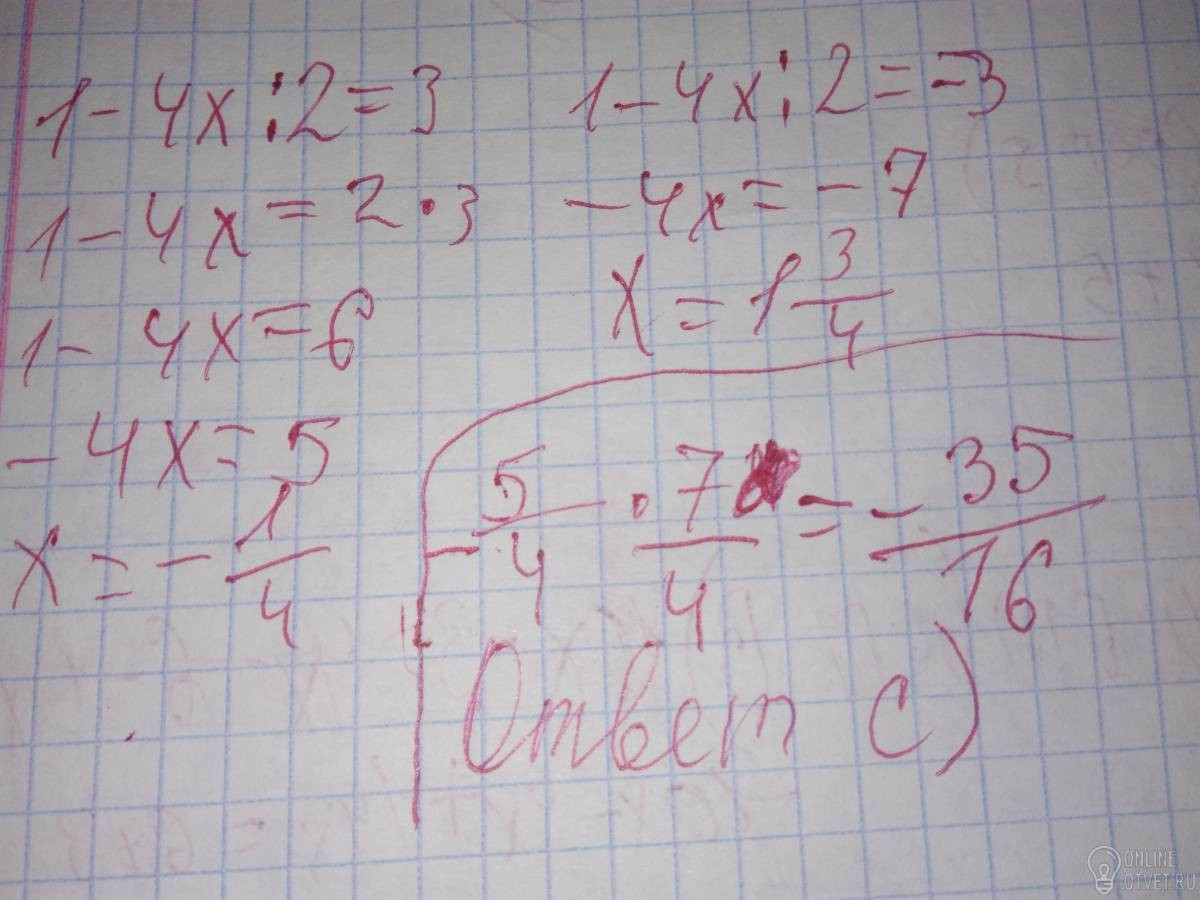 1 - 4x : 2 = 3
1 - 4x = 2 · 3
1 - 4x = 6
- 4x = 5
x = - 1/4
1 - 4x : 2 = -3
- 4x = - 7
x = 1 3/4
- 5/4 · 7/4 = - 35/16
Ответ с)
ONLINE
OTVET.RU